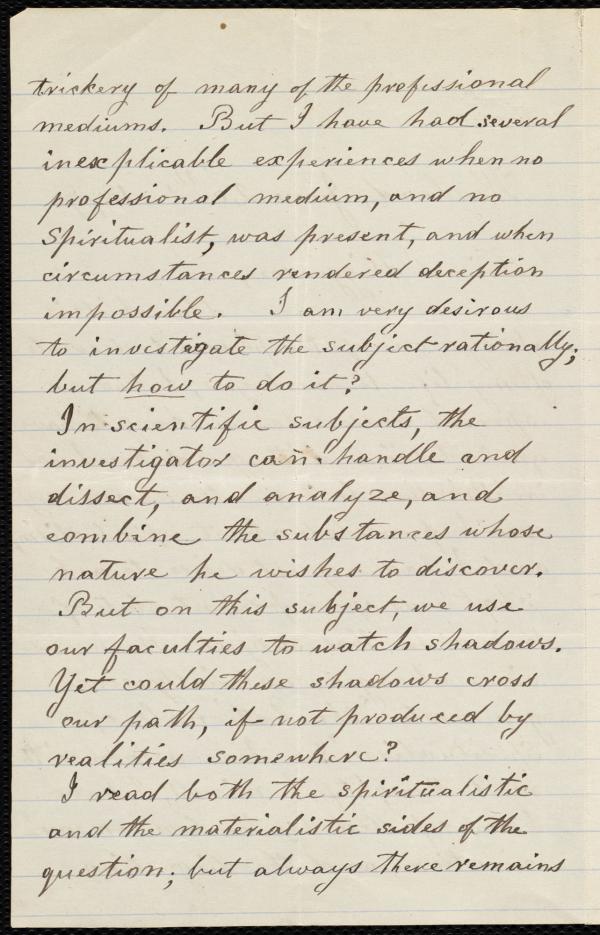 trickery of many of the professional
mediums. But I have had several
inexplicable experiences when no
professional medium, and no
Spiritualist, was present, and when
circumstances rendered deception
impossible. I am very desirous
to investigate the subject rationally;
but how to do it?
In scientific subjects, the
investigator can handle and
dissect, and analyze, and
combine the substances whose
nature he wishes to discover.
But on this subject, we use
our faculties to watch shadows.
Yet could these shadows cross
our path, if not produced by
realities somewhere?
I read both the spiritualistic
and the materialistic sides of the
question; but always there remains